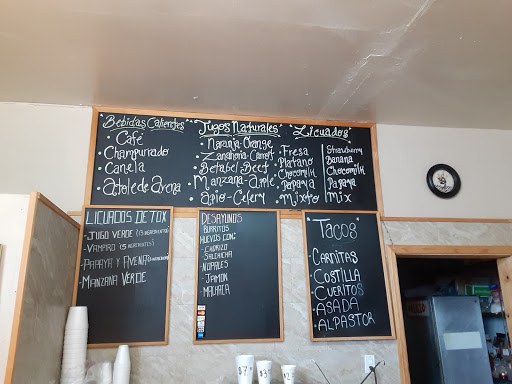 Bebidas Calientes
Café
• Champurado
• Canela
• Atole de Avena
Jugos Naturales
Naranja-Orange
Zanahoria-Carrot
• Betabel-Beet
• Manzana-Apple
• Apio-Celery
Licuados
• Fresa Strawberry
Platano Banana
Chocomilk Chocomilk
Papaya Papaya
Mixto Mix
LICUADOS DETOX
- JUGO VERDE
- VAMPIRO
- PAPAYA Y AVENA
- MANZANA VERDE
DESAYUNOS
BURRITOS
HUEVOS CON:
- CHORIZO
- SALCHICHA
- NOPALES
- JAMON
- MACHACA
"TACOS"
• CARNITAS
• COSTILLA
• CUERITOS
• ASADA
• ALPASTOR